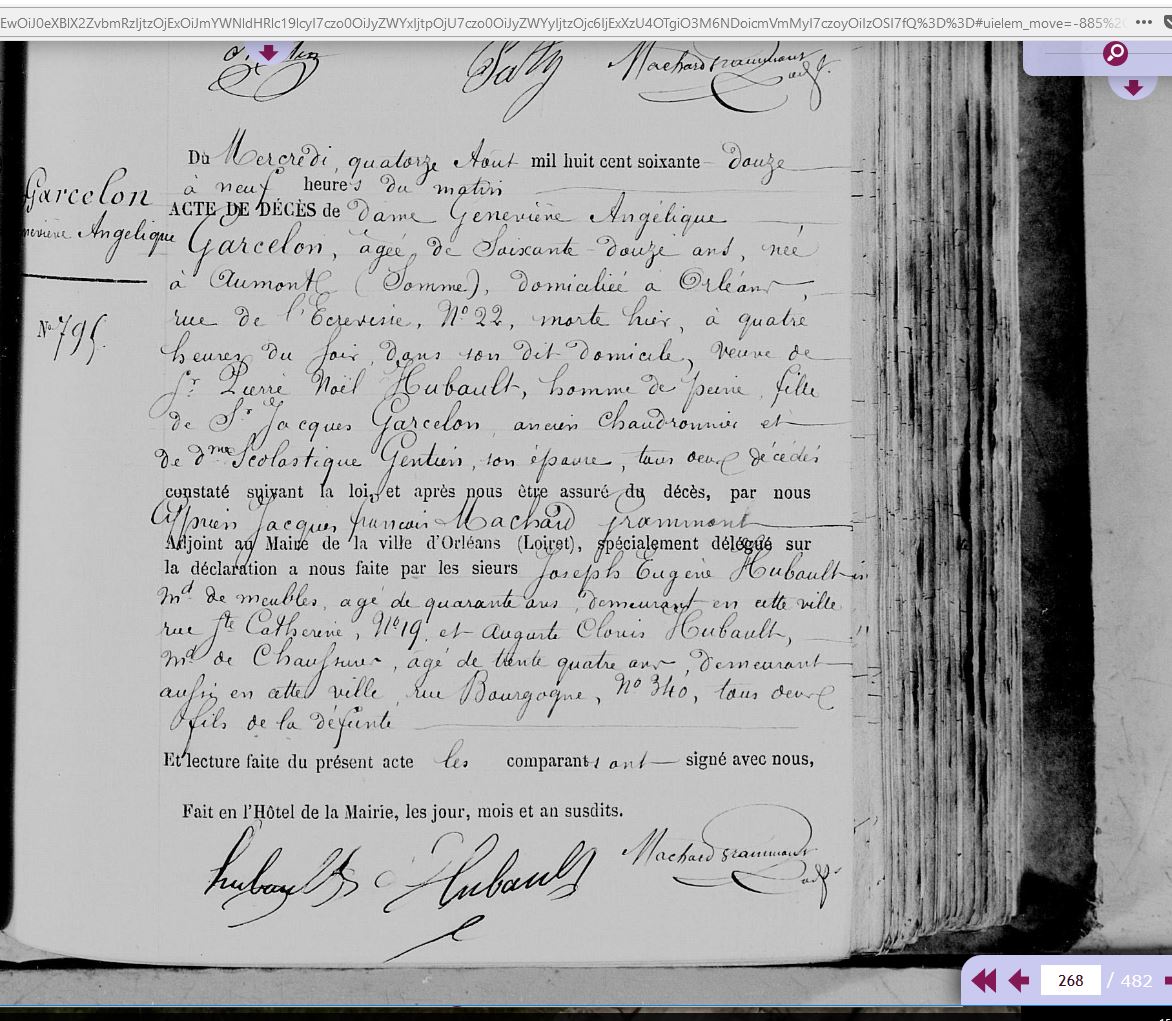 EwOiJ0eXBlX2ZvbmRzIjtzOjExOiJmYWNldHRlc19lcyI7czo0OiJyZWYxIjtpOjU7czo0OiJyZWYyIjtzOjc6IjExXzU4OTgiO3M6NDoicmVmMyI7czoyOiIzOSI7fQ%3D%3D#uielem_move=-885%2C
Machard Grammont
adj.t
Du Mercredi, quatorze Aout mil huit cent soixante douze
à neuf heures du matin
Garcelon
ACTE DE DÉCÈS de Dame Geneviève Angélique
neviève Angélique
Garcelon, âgée de Soixante-douze ans, née
à Aumont (Somme), domiciliée à Orléans,
N° 795.
rue de l'Ecrevisse, N° 22, morte hier, à quatre
heures du soir, dans son dit domicile, veuve de
Sr. Pierre Noël Hubault, homme de peine, fille
de Sr. Jacques Garcelon, ancien Chaudronnier et
de dme Scolastique Gentien, son épouse, tous deux décédés
constaté suivant la loi, et après nous être assuré du décès, par nous
Cyprien Jacques françois Machard Grammont
Adjoint au Maire de la ville d'Orléans (Loiret), spécialement délégué sur
la déclaration a nous faite par les sieurs Joseph Eugène Hubault
md. de meubles, agé de quarante ans, demeurant en cette ville
rue Ste Catherine, N° 19, et Auguste Clovis Hubault,
md. de Chaussures, agé de trente quatre ans, demeurant
aussi en cette ville, rue Bourgogne, N° 340, tous deux
fils de la défunte
Et lecture faite du présent acte les comparants ont signé avec nous,
Fait en l'Hôtel de la Mairie, les jour, mois et an susdits.
hubault
Hubault
Machard Grammont
adj.t
268 / 482